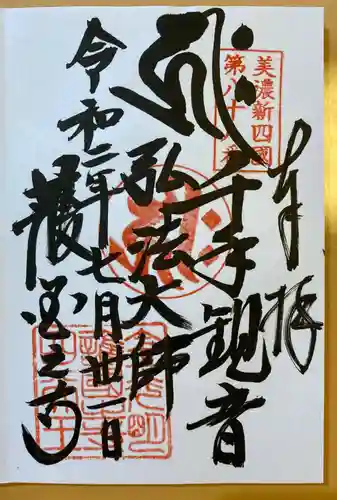 奉拝
美濃新四國
第八十一番
千手観音
弘法大師
令和二年七月卅一日
護国之寺